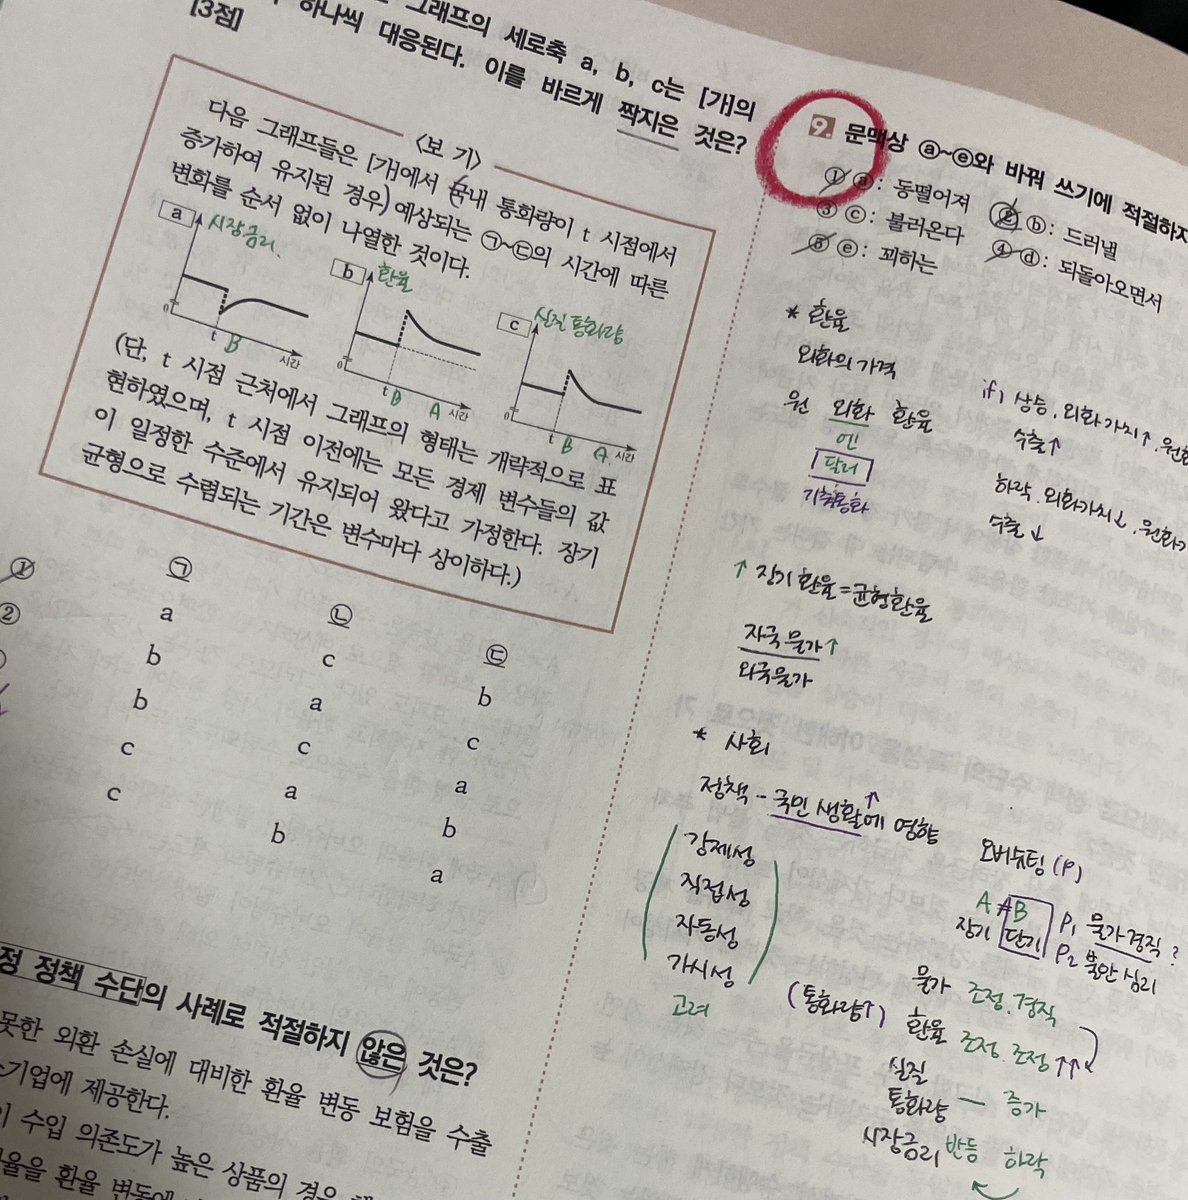 그래프의 세로축 a, b, c는 [가]의
하나씩 대응된다. 이를 바르게 짝지은 것은?
[3점]
<보 기>
다음 그래프들은 [가]에서 국내 통화량이 t 시점에서
증가하여 유지된 경우 예상되는 ㉠~㉢의 시간에 따른
변화를 순서 없이 나열한 것이다.
a 시장금리
0 t B 시간
b 환율
0 t B A 시간
c 실질통화량
0 t B A 시간
(단, t 시점 근처에서 그래프의 형태는 개략적으로 표
현하였으며, t 시점 이전에는 모든 경제 변수들의 값
이 일정한 수준에서 유지되어 왔다고 가정한다. 장기
균형으로 수렴되는 기간은 변수마다 상이하다.)
㉠ ㉡ ㉢
① a c b
② b a c
b c a
c a b
c b a
정 정책 수단의 사례로 적절하지 않은 것은?
못한 외환 손실에 대비한 환율 변동 보험을 수출
소기업에 제공한다.
수입 의존도가 높은 상품의 경우
율을 환율 변동에
9. 문맥상 ⓐ~ⓔ와 바꿔 쓰기에 적절하지
① ⓐ: 동떨어져 ② ⓑ: 드러낼
③ ⓒ: 불러온다 ④ ⓓ: 되돌아오면서
⑤ ⓔ: 꾀하는
* 환율
외화의 가격
원 외화 환율
엔
달러
기축통화
if, 상승, 외화가치↑, 원화
수출↑
하락, 외화가치↓, 원화가
수출↓
↑장기 환율=균형환율
자국물가↑
외국물가
* 사회
정책 - 국민 생활에 영향
↑
강제성
직접성
자동성
가시성
고려
오버슈팅 (P)
A ≠ B
장기 단기
P₁ 물가경직 ?
P₂ 불안 심리
물가 조정.경직
(통화량↑) 환율 조정.조정↑↑
실질
통화량 — 증가
시장금리 반등 하락